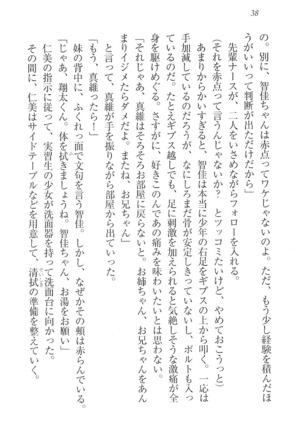 38
の。別に、智佳ちゃんは赤点ってワケじゃないのよ。ただ、もう少し経験を積んだほ
うがいいって判断が出ただけだから」
　先輩ナースが、二人をいさめながらフォローを入れる。
（それを赤点って言うんじゃないか？　とツッコミたいけど、やめておこうっと）
　あまりからかいすぎると、智佳は本当に少年の右足をギプスの上から叩く。一応は
手加減しているのだろうが、なにしろまだ骨が安定しきっておらず、ボルトも入っ
ているのだ。たとえギプス越しでも、足に刺激を加えられると気絶しそうな激痛が全
身を駆けめぐる。さすがに、好きこのんであの痛みを味わいたいとは思わない。
「それじゃあ、真維はそろそろお部屋に戻らないと。お姉ちゃん、お兄ちゃんをあん
まりイジメたらダメだよ。またね、お兄ちゃん」
　と言って、真維が手を振りながら部屋から出ていった。
「もう、真維ったら！」
　妹の背中に、ふくれっ面で文句を言う智佳。しかし、なぜかその頬は赤らんでいる。
「じゃあ、翔太くん。体を拭きましょうね。智佳ちゃん、お湯をお願い」
　仁美の指示に従って、実習生の少女が洗面器を持って洗面台に向かった。
　その間に、仁美はサイドテーブルなどを用意して、清拭の準備を整えていく。